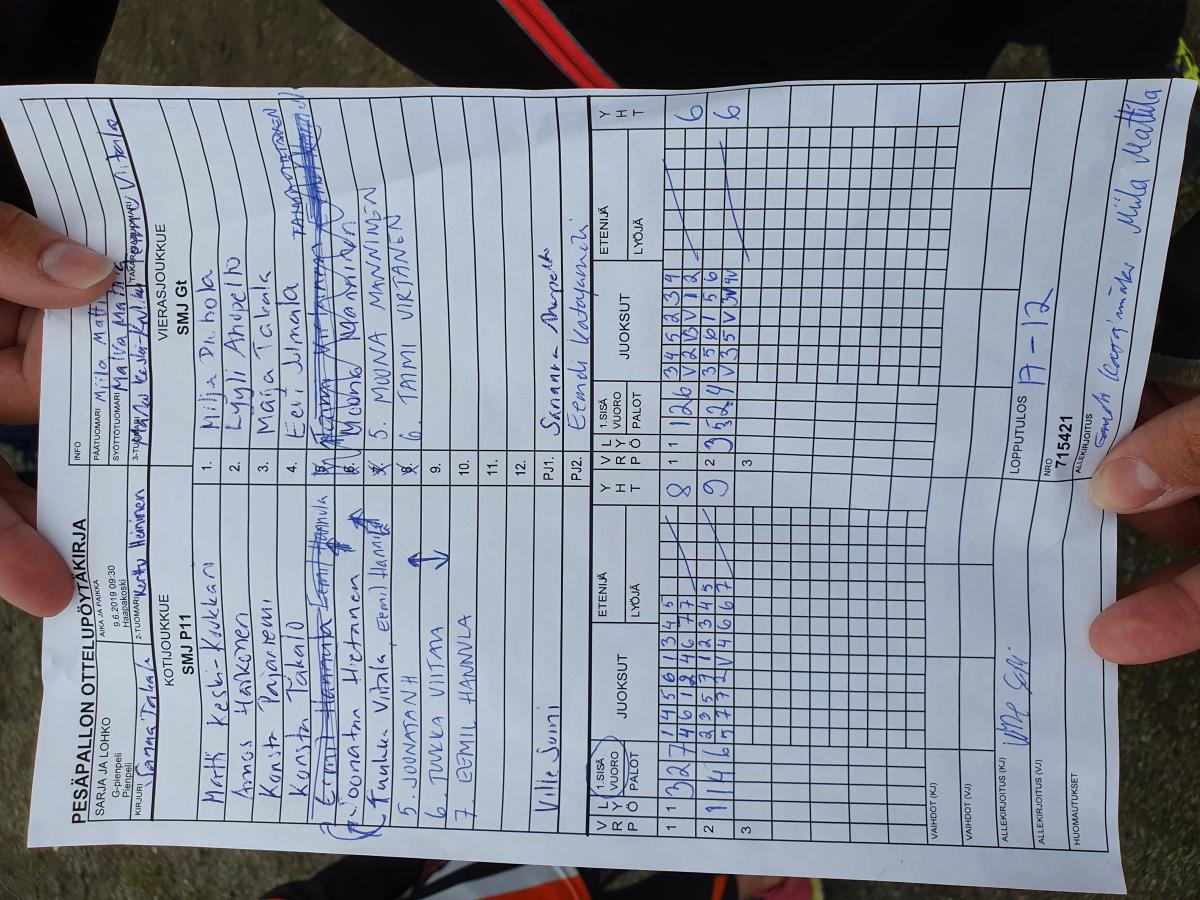 PESÄPALLON OTTELUPÖYTÄKIRJA
SARJA JA LOHKO
G-pienpeli
Pienpeli
AIKA JA PAIKKA
9.6.2019 09:30
Haapakoski
INFO
PÄÄTUOMARI Miila Matti
SYÖTTÖTUOMARI Malva Mattila
KIRJURI Sanna Takala
2-TUOMARI Kerttu Heininen
3-TUOMARI
TAKARAJATUOMARI Viitala
KOTIJOUKKUE
SMJ P11
VIERASJOUKKUE
SMJ Gt
Matti Keski-Koukkari
1. Milja
Amos Haikonen
2. Lyyli Ahopelto
Konsta Pajaniemi
3. Maija Takala
Konsta Takalo
4. Eevi Ulmala
Eemil Hannula Eemil Hannula
5.
Joonatan Hietanen
6. Moona Manninen
Tuukka Viitala, Eemil Hannula
7. 5. MOONA MANNINEN
5. JOONATAN H
8. 6. TAIMI VIRTANEN
6. TUUKKA VIITALA
9.
7. EEMIL HANNULA
10.
11.
12.
Ville Suni
PJ1. Sanna Ahopelto
PJ2. Eemeli Katajamäki
V L
R Y
P Ö
1.SISÄ
VUORO
PALOT
JUOKSUT
ETENIJÄ
LYÖJÄ
Y
H
T
V L
R Y
P Ö
1.SISÄ
VUORO
PALOT
JUOKSUT
ETENIJÄ
LYÖJÄ
Y
H
T
1 1 3 2 7 1 4 5 6 1 3 4 5 8
4 6 1 2 4 6 7 7
1 1 1 2 6 3 4 5 2 3 4 6
2 1 1 4 6 2 3 5 7 1 2 3 4 5 9
5 7 7 2 V 4 6 6 7
2 3 5 2 4 3 5 6 1 5 6 6
3
3
VAIHDOT (KJ)
VAIHDOT (VJ)
ALLEKIRJOITUS (KJ)
LOPPUTULOS 17-12
ALLEKIRJOITUS (VJ)
NRO
715421
HUOMAUTUKSET
ALLEKIRJOITUS
Miila Mattila